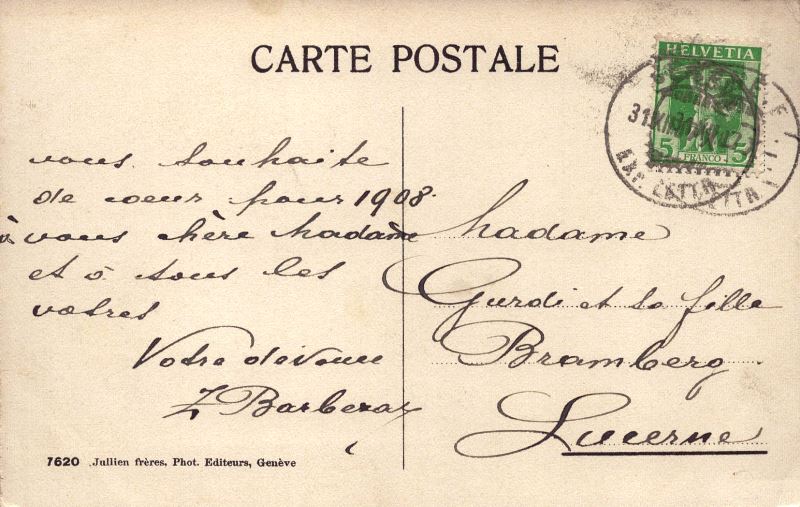 CARTE POSTALE
HELVETIA
5 FRANCO 5
31.XII.07
vous souhaite
de coeur pour 1908
à vous chère Madame
et à tous les
vôtres
Votre dévouée
Z Barbezat
Madame
Gurdi et sa fille
Bramberg
Lucerne
7620 Jullien frères, Phot. Editeurs, Genève